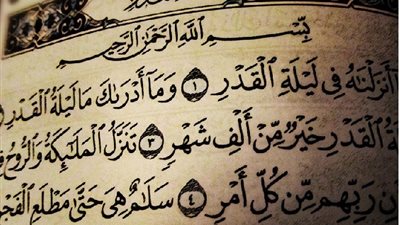 بِسْمِ اللَّهِ الرَّحْمَٰنِ الرَّحِيمِ
أَنزَلْنَٰهُ فِى لَيْلَةِ الْقَدْرِ ١ وَمَآ أَدْرَىٰكَ مَا لَيْلَةُ الْقَدْرِ
ةُ الْقَدْرِ خَيْرٌ مِّنْ أَلْفِ شَهْرٍ ٣ تَنَزَّلُ الْمَلَٰٓئِكَةُ وَالرُّوحُ
نِ رَبِّهِم مِّن كُلِّ أَمْرٍ ٤ سَلَٰمٌ هِىَ حَتَّىٰ مَطْلَعِ الْفَجْ